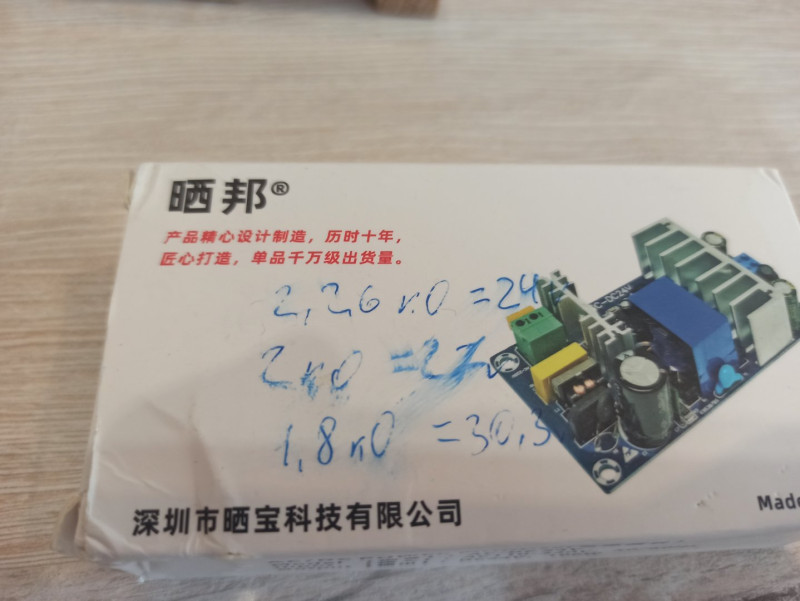 晒邦®
产品精心设计制造，历时十年，
匠心打造，单品千万级出货量。
2,26 кО =24
2кО =27
1,8кО =30,3
深圳市晒宝科技有限公司
Made